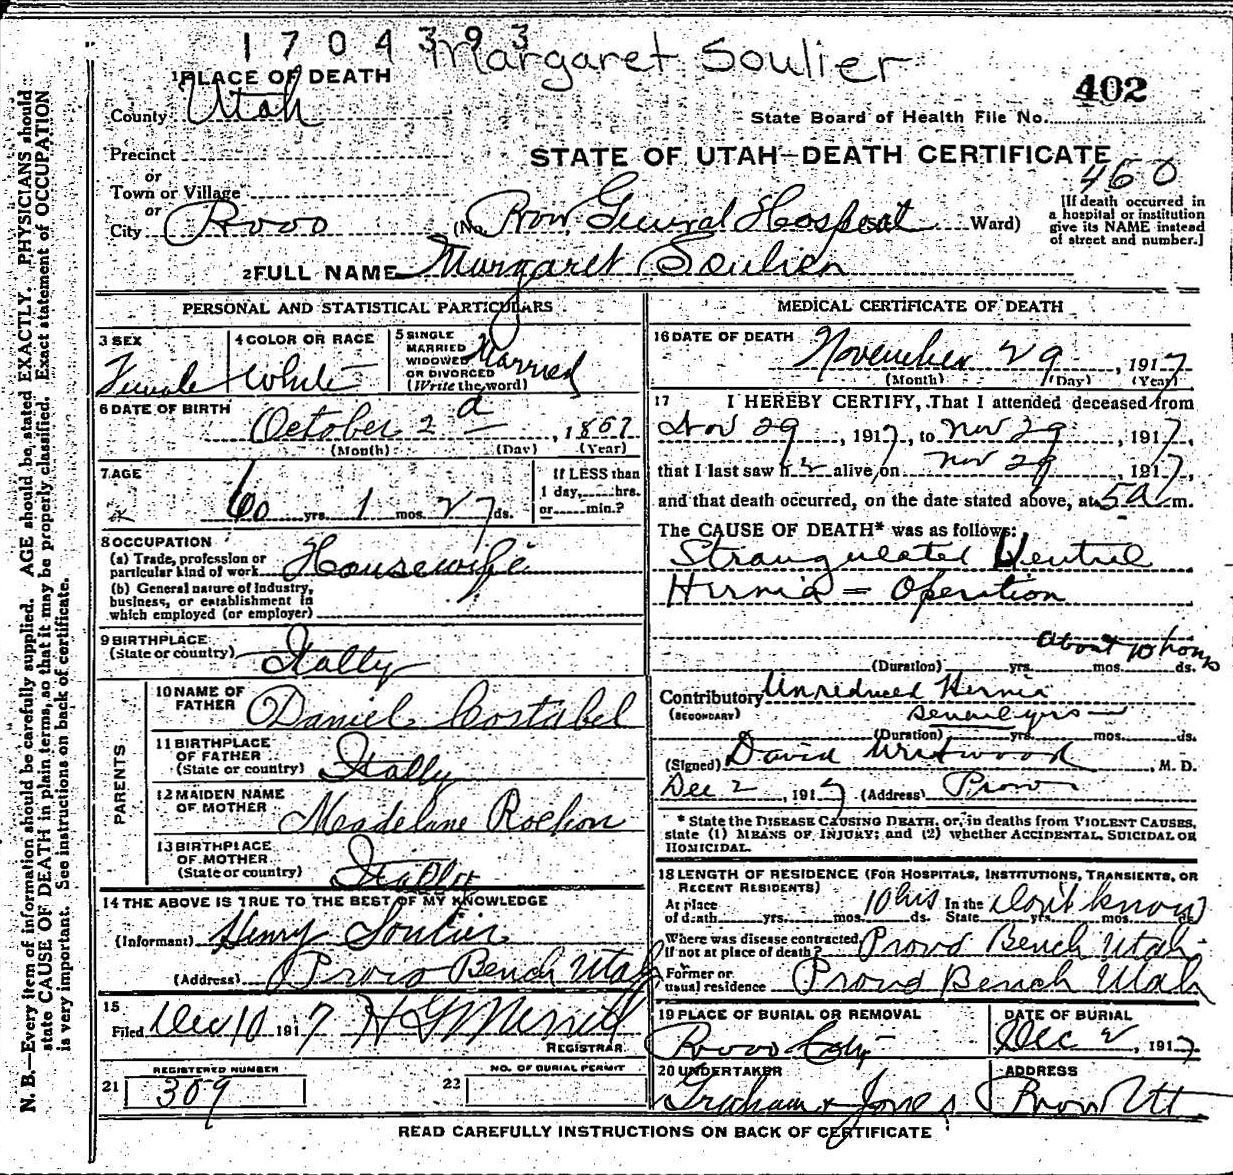 1704393
Margaret Soulier
1 PLACE OF DEATH
402
County Utah
State Board of Health File No.
Precinct
STATE OF UTAH—DEATH CERTIFICATE
or
460
Town or Village
or
City Provo (No. Prov. General Hospital Ward)
[If death occurred in
a hospital or institution
give its NAME instead
of street and number.]
2 FULL NAME Margaret Soulier
PERSONAL AND STATISTICAL PARTICULARS
3 SEX
Female
4 COLOR OR RACE
White
5 SINGLE
MARRIED
WIDOWED
OR DIVORCED
(Write the word)
Married
6 DATE OF BIRTH
October 2d, 1857
(Month) (Day) (Year)
7 AGE
60 yrs. 1 mos. 27 ds.
If LESS than
1 day, hrs.
or min.?
8 OCCUPATION
(a) Trade, profession or
particular kind of work Housewife
(b) General nature of industry,
business, or establishment in
which employed (or employer)
9 BIRTHPLACE
(State or country) Itally
PARENTS
10 NAME OF
FATHER Daniel Costabel
11 BIRTHPLACE
OF FATHER
(State or country) Itally
12 MAIDEN NAME
OF MOTHER Madelane Rochon
13 BIRTHPLACE
OF MOTHER
(State or country) Itally
14 THE ABOVE IS TRUE TO THE BEST OF MY KNOWLEDGE
(Informant) Henry Soulier
(Address) Provo Bench Utah
15
Filed Dec 10 1917 H G Merrill
REGISTRAR.
21 REGISTERED NUMBER
309
22 NO. OF BURIAL PERMIT
MEDICAL CERTIFICATE OF DEATH
16 DATE OF DEATH
November 29, 1917
(Month) (Day) (Year)
17 I HEREBY CERTIFY, That I attended deceased from
Nov 29, 1917, to Nov 29, 1917,
that I last saw her alive on Nov 29, 1917,
and that death occurred, on the date stated above, at 5 a m.
The CAUSE OF DEATH* was as follows:
Strangulated Ventral
Hernia = Operation
About 10 hours
(Duration) yrs. mos. ds.
Contributory Unreduced Hernia
(SECONDARY) several yrs
(Duration) yrs. mos. ds.
(Signed) David Westwood, M. D.
Dec 2, 1917 (Address) Provo
* State the DISEASE CAUSING DEATH, or, in deaths from VIOLENT CAUSES,
state (1) MEANS OF INJURY; and (2) whether ACCIDENTAL, SUICIDAL OR
HOMICIDAL.
18 LENGTH OF RESIDENCE (FOR HOSPITALS, INSTITUTIONS, TRANSIENTS, OR
RECENT RESIDENTS)
At place
of death yrs. mos. 10 hrs ds. In the State don't know yrs. mos. ds.
Where was disease contracted,
if not at place of death? Provo Bench Utah
Former or
usual residence Provo Bench Utah
19 PLACE OF BURIAL OR REMOVAL
Provo City
DATE OF BURIAL
Dec 2, 1917
20 UNDERTAKER
Graham & Jones
ADDRESS
Provo Ut
READ CAREFULLY INSTRUCTIONS ON BACK OF CERTIFICATE
N. B.—Every item of information should be carefully supplied. AGE should be stated EXACTLY. PHYSICIANS should
state CAUSE OF DEATH in plain terms, so that it may be properly classified. Exact statement of OCCUPATION
is very important. See instructions on back of certificate.